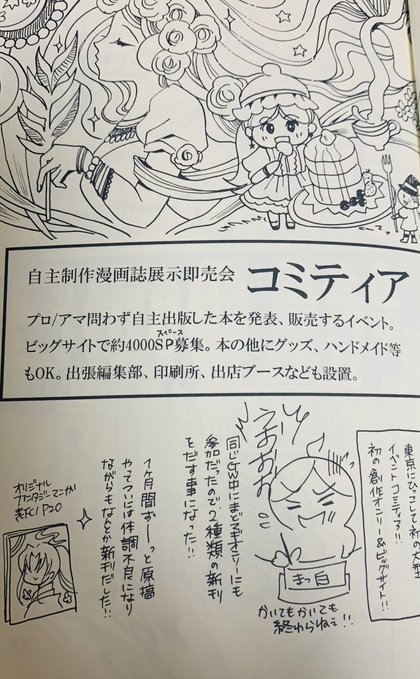 自主制作漫画誌展示即売会 コミティア
プロ/アマ問わず自主出版した本を発表、販売するイベント。
スペース
ビッグサイトで約4000SP募集。本の他にグッズ、ハンドメイド等
もOK。出張編集部、印刷所、出店ブースなども設置。
東京にひっこして初の大型
イベントコミティア!!
初の創作オンリー&ビッグサイト!!
うおおおお
まっ白
かいてもかいても
終わらねぇ!!
同じGW中にまどろぎオンリーにも
参加だったので2種類の新刊
をだす事になった!!
1ヶ月間ずーーっと原稿
やってついには体調不良になり
ながらもなんとか新刊だした!!
オリジナル
ファンタジーまんが
表FC/P20